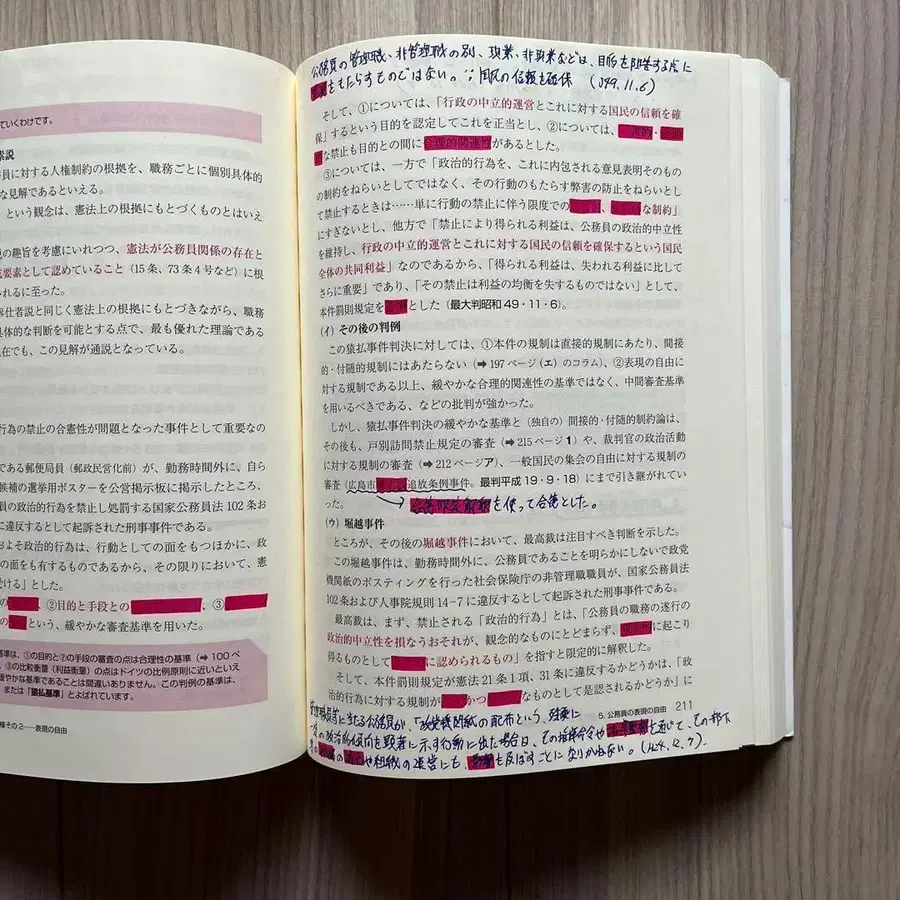 ていくわけです。
素説
員に対する人権制約の根拠を、職務ごとに個別具体的
な見解であるといえる。
という観念は、憲法上の根拠にもとづくものとはいえ
説の趣旨を考慮にいれつつ、憲法が公務員関係の存在と
要素として認めていること（15条、73条4号など）に根
れるに至った。
奉仕者説と同じく憲法上の根拠にもとづきながら、職務
具体的な判断を可能とする点で、最も優れた理論である
在でも、この見解が通説となっている。
行為の禁止の合憲性が問題となった事件として重要なの
である郵便局員（郵政民営化前）が、勤務時間外に、自ら
候補の選挙用ポスターを公営掲示板に掲示したところ、
員の政治的行為を禁止し処罰する国家公務員法102条お
に違反するとして起訴された刑事事件である。
およそ政治的行為は、行動としての面をもつほかに、政
の面も有するものであるから、その限りにおいて、憲
受ける」とした。
の、②目的と手段との、③
のという、緩やかな審査基準を用いた。
基準は、①の目的と②の手段の審査の点は合理性の基準（➡100ペ
、③の比較衡量（利益衡量）の点はドイツの比例原則に近いといえ
緩やかな基準であることは間違いありません。この判例の基準は、
または「猿払基準」とよばれています。
権その2――表現の自由
公務員の管理職、非管理職の別、現業、非現業などは、目的を阻害する点に
をもたらすものではない。∵国民の信頼を確保（S49.11.6）
そして、①については、「行政の中立的運営とこれに対する国民の信頼を確
保」するという目的を認定してこれを正当とし、②については、
な禁止も目的との間に合理的関連性があるとした。
③については、一方で「政治的行為を、これに内包される意見表明そのもの
の制約をねらいとしてではなく、その行動のもたらす弊害の防止をねらいとし
て禁止するときは……単に行動の禁止に伴う限度での、な制約」
にすぎないとし、他方で「禁止により得られる利益は、公務員の政治的中立性
を維持し、行政の中立的運営とこれに対する国民の信頼を確保するという国民
全体の共同利益」なのであるから、「得られる利益は、失われる利益に比して
さらに重要」であり、「その禁止は利益の均衡を失するものではない」として、
本件罰則規定をとした（最大判昭和49・11・6）。
（イ）その後の判例
この猿払事件判決に対しては、①本件の規制は直接的規制にあたり、間接
的・付随的規制にはあたらない（➡197ページ（エ）のコラム）、②表現の自由に
対する規制である以上、緩やかな合理的関連性の基準ではなく、中間審査基準
を用いるべきである、などの批判が強かった。
しかし、猿払事件判決の緩やかな基準と（独自の）間接的・付随的制約論は、
その後も、戸別訪問禁止規定の審査（➡215ページ1）や、裁判官の政治活動
に対する規制の審査（➡212ページア）、一般国民の集会の自由に対する規制の
審査（広島市追放条例事件。最判平成19・9・18）にまで引き継がれてい
った。
→合憲限定解釈を使って合憲とした。
（ウ）堀越事件
ところが、その後の堀越事件において、最高裁は注目すべき判断を示した。
この堀越事件は、勤務時間外に、公務員であることを明らかにしないで政党
機関紙のポスティングを行った社会保険庁の非管理職職員が、国家公務員法
102条および人事院規則14-7に違反するとして起訴された刑事事件である。
最高裁は、まず、禁止される「政治的行為」とは、「公務員の職務の遂行の
政治的中立性を損なうおそれが、観念的なものにとどまらず、に起こり
得るものとしてに認められるもの」を指すと限定的に解釈した。
そして、本件罰則規定が憲法21条1項、31条に違反するかどうかは、「政
治的行為に対する規制がかつなものとして是認されるかどうか」に
5. 公務員の表現の自由 211
管理職員等に当たる公務員が、「政党機関紙の配布という、強
一定の政治的傾向を顕著に示す行動に出た場合は、その指揮命令やを通じて、その部下
の や組織の運営にも、を及ぼすことになりかねない。（H24.12.7）